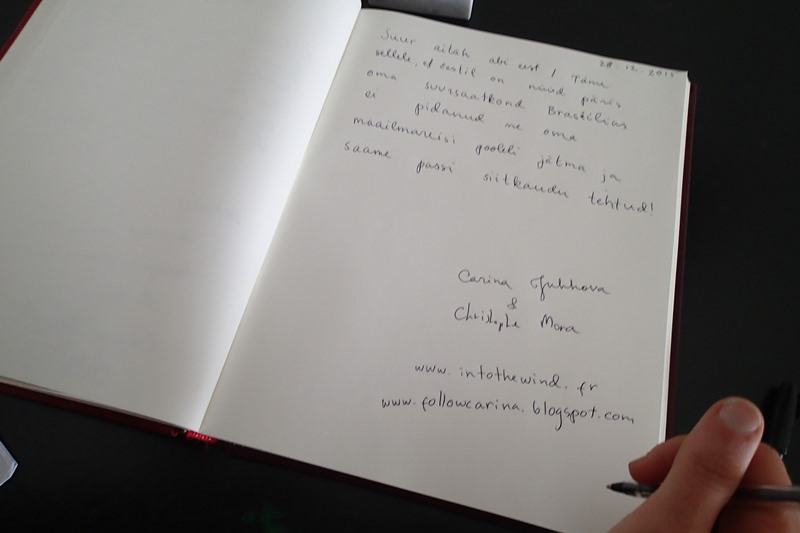 28.12.2015
Suur aitäh abi eest! Täna
sellele, et Eestil on nüüd päris
oma suursaatkond Brasiilias
ei pidanud me oma
maailmareisi pooleli jätma ja
saame passi siitkaudu tehtud!
Carina
&
Christophe Mora
www.intothewind.fr
www.followcarina.blogspot.com